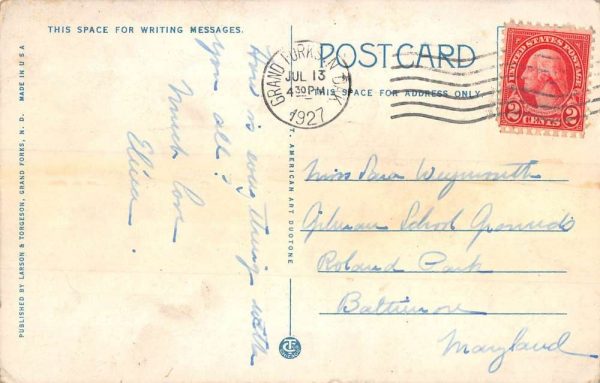 THIS SPACE FOR WRITING MESSAGES.
POSTCARD
THIS SPACE FOR ADDRESS ONLY
GRAND FORKS, N. DAK.
JUL 13
4 30 PM
1927
UNITED STATES POSTAGE
2 CENTS 2
How is everything with
you all?
Much love
Elisea.
Miss Sara Weymouth
Gilman School Grounds
Roland Park
Baltimore
Maryland
PUBLISHED BY LARSON & TORGESON, GRAND FORKS, N. D. MADE IN U S A
C. T. AMERICAN ART DUOTONE